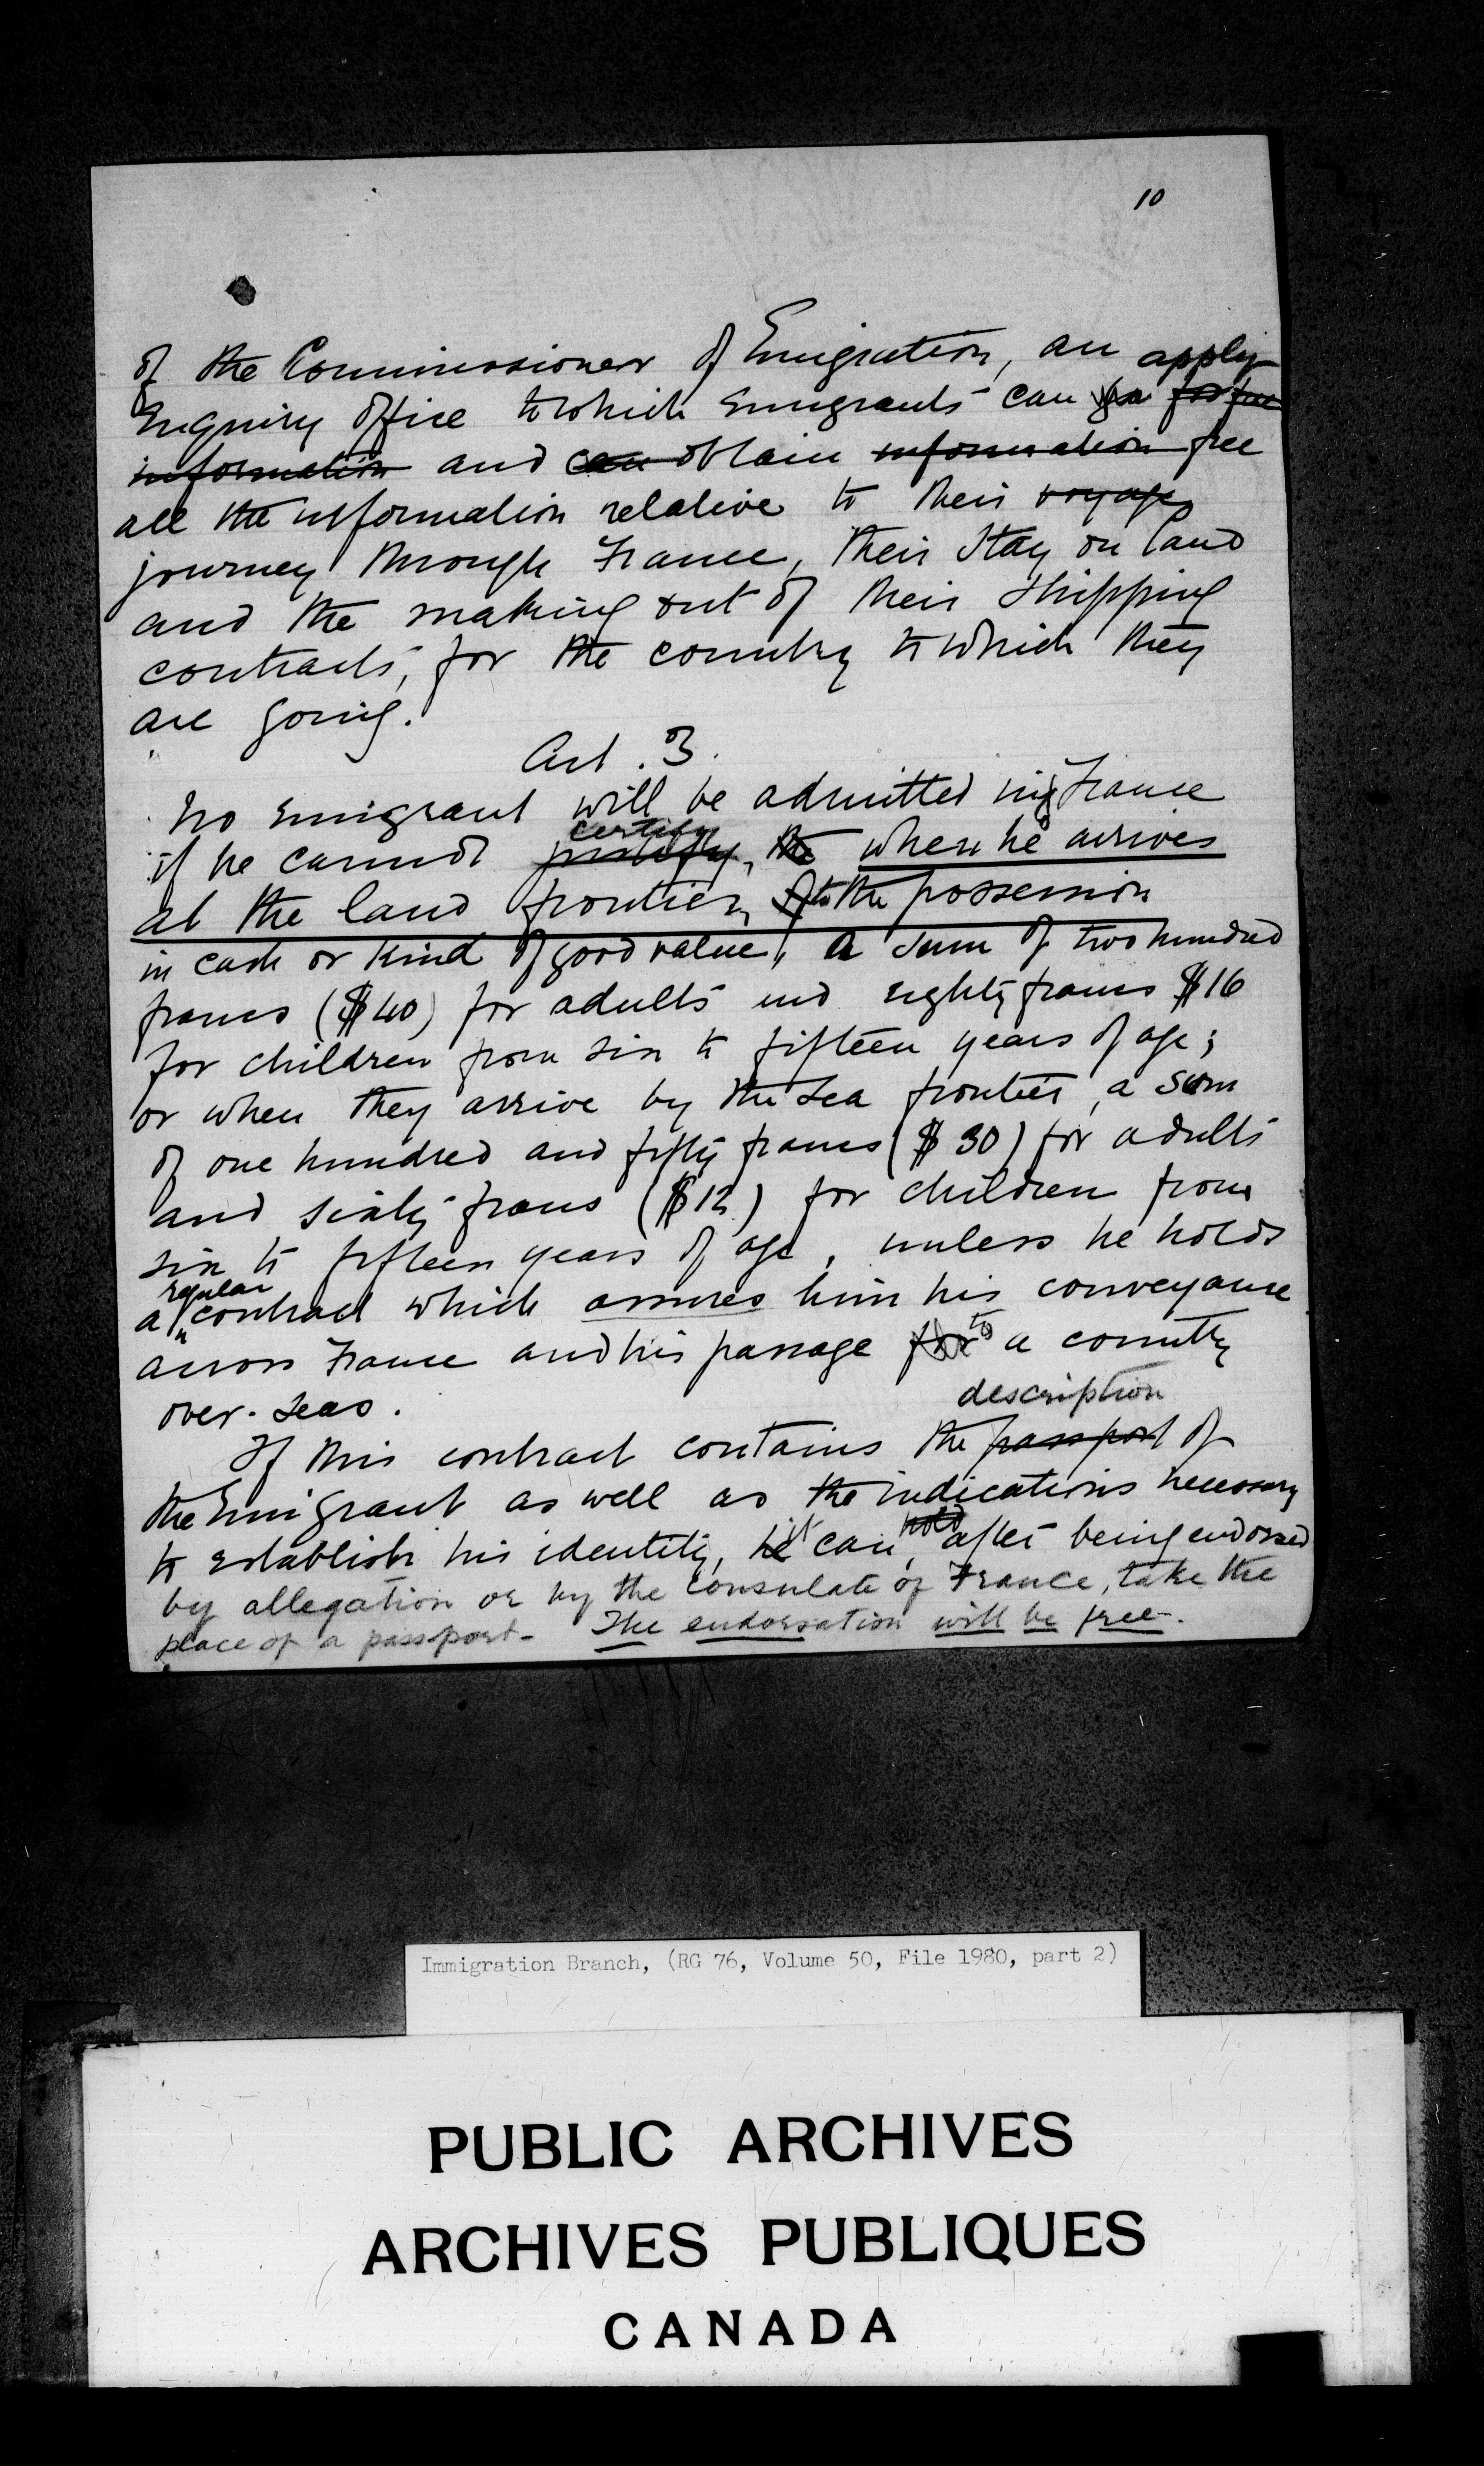 10
of the Commissioner of Emigration, an apply
Enquiry Office to which Emigrants can go for free
information and can obtain information free
all the information relative to their voyage
journey through France, their stay on land
and the making out of their shipping
contracts, for the country to which they
are going.
Art. 3.
No emigrant will be admitted in France
certify
if he cannot justify, the when he arrives
at the land frontier, to the possession
in cash or kind of good value, a sum of two hundred
francs ($40) for adults and eighty francs $16
for children from six to fifteen years of age;
or when they arrive by the sea frontier, a sum
of one hundred and fifty francs ($30) for adults
and sixty francs ($12) for children from
six to fifteen years of age, unless he holds
regular
a contract which assures him his conveyance
across France and his passage for to a country
over-seas.
description
If this contract contains the passport of
the Emigrant as well as the indications necessary
to establish his identity, he it can, hold after being endorsed
by allegation or by the Consulate of France, take the
place of a passport- The endorsation will be free-.
Immigration Branch, (RG 76, Volume 50, File 1980, part 2)
PUBLIC ARCHIVES
ARCHIVES PUBLIQUES
CANADA